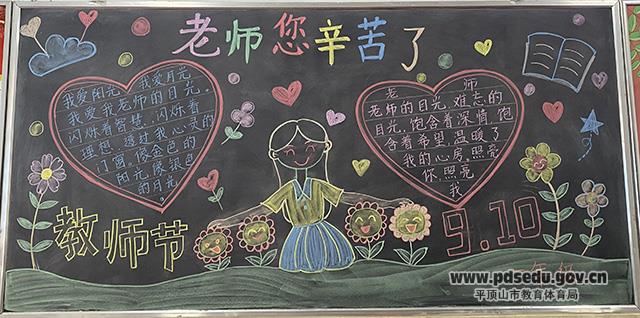 老师您辛苦了
我爱阳光 我爱月光
我爱我老师的目光。
闪烁着智慧、闪烁着
理想、透过我心灵的
门窗。像金色的
阳光,像银色
的月光。
老 师
老师的目光,难忘的
目光,饱含着深情,饱
含着希望,温暖了
我的心房。照亮
你,照亮
我
教师节
9.10
www.pdsedu.gov.cn
平顶山市教育体育局